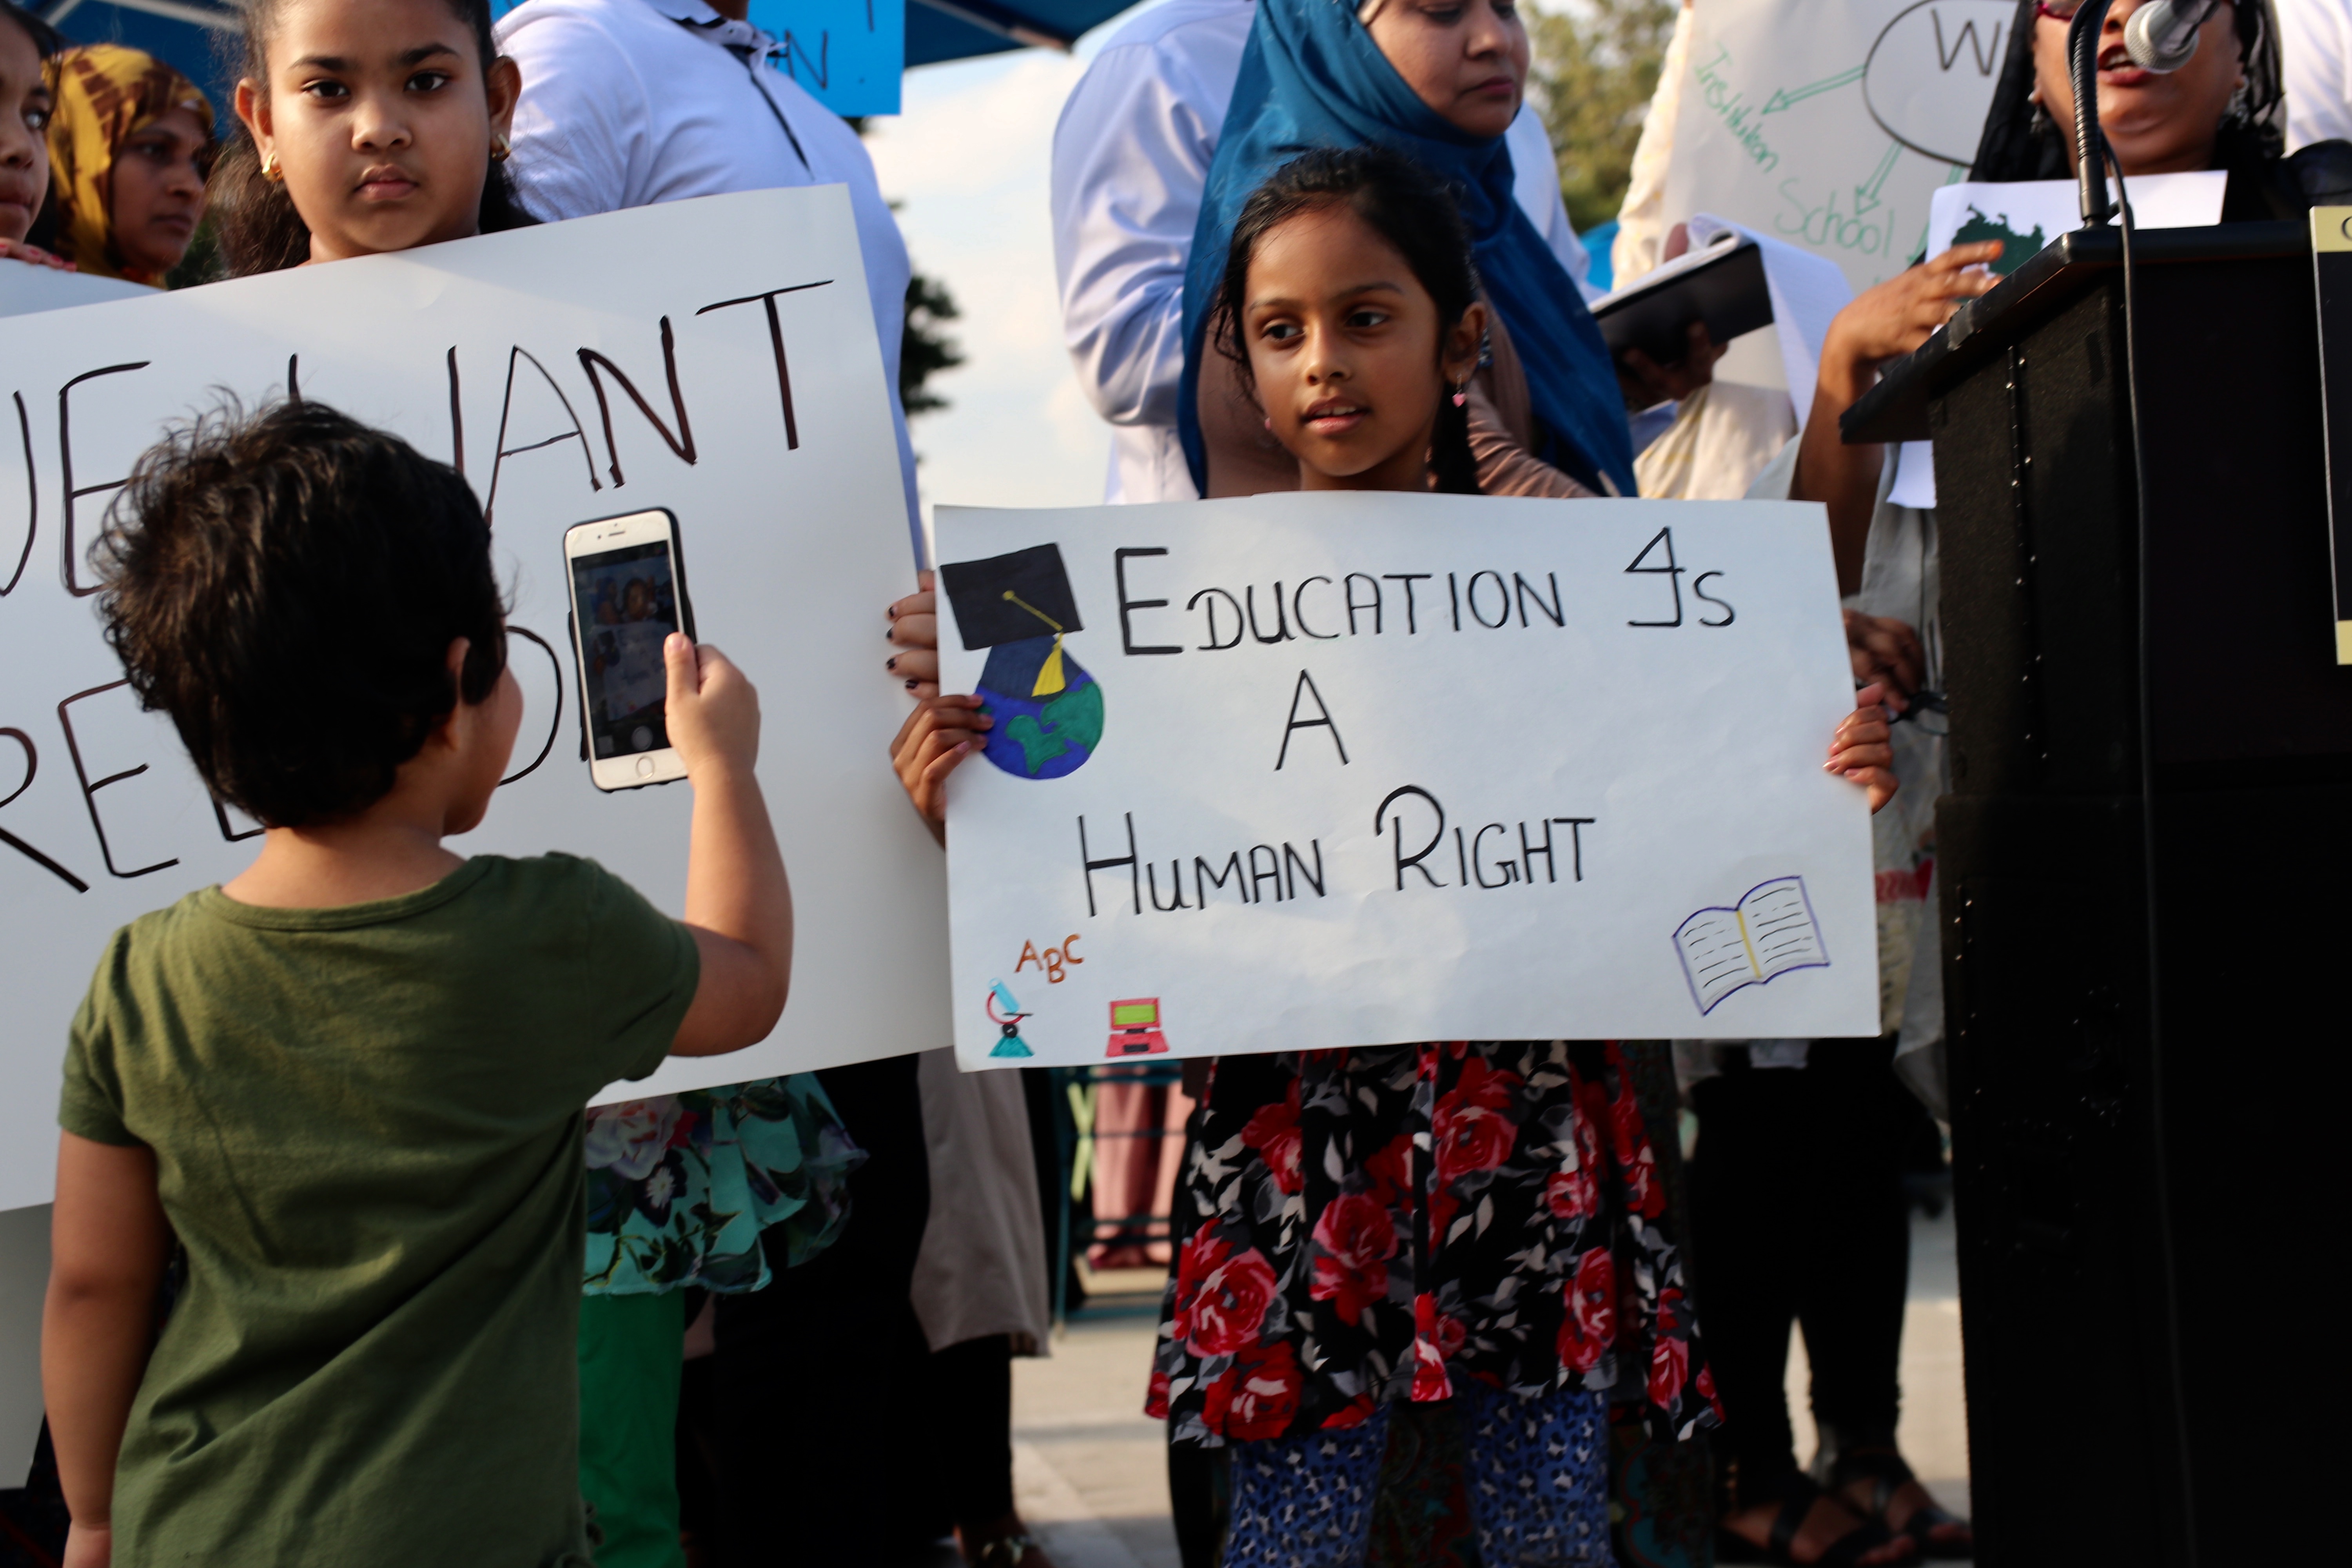 WE WANT
EDUCATION IS
A
HUMAN RIGHT
ABC
Institution
School